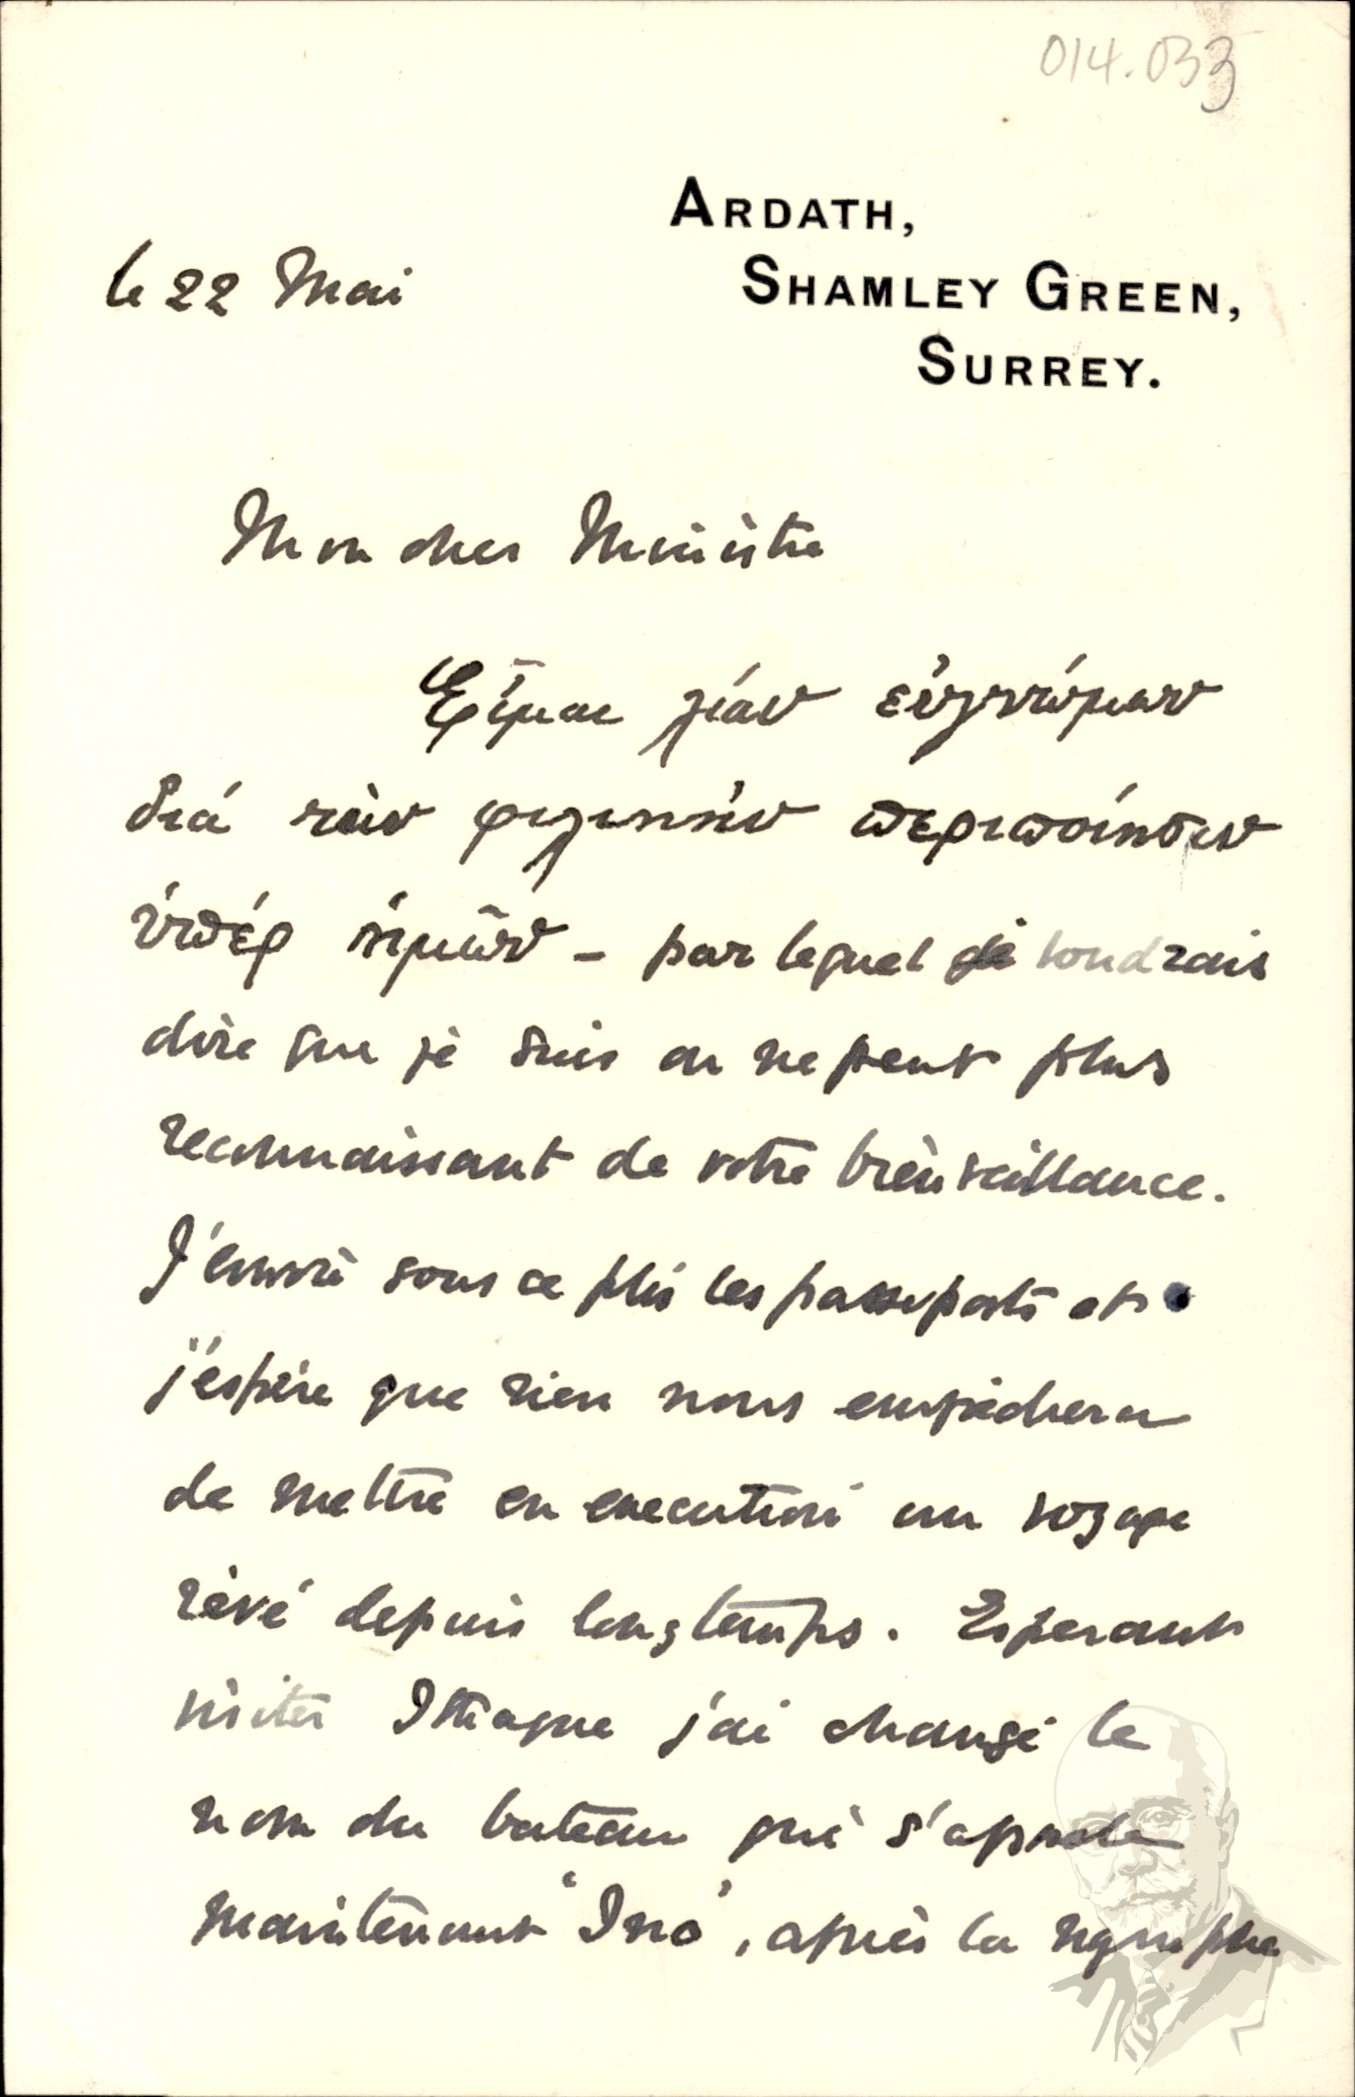 014.033
ARDATH,
SHAMLEY GREEN,
SURREY.
le 22 Mai
Mon cher Ministre
Εἶμαι λίαν εὐγνώμων
διά τὴν φιλικήν περιποίησιν
ὑπέρ ἡμῶν – par lequel je voudrais
dire que je suis on ne peut plus
reconnaissant de votre bienveillance.
J'envoie sous ce plis les passeports et
j'éspère que rien nous empêchera
de mettre en execution un voyage
rêvé depuis longtemps. Esperant
visiter Ithaque j'ai changé le
nom du bateau qui s'appelle
maintenant 'Ino', après la nymphe